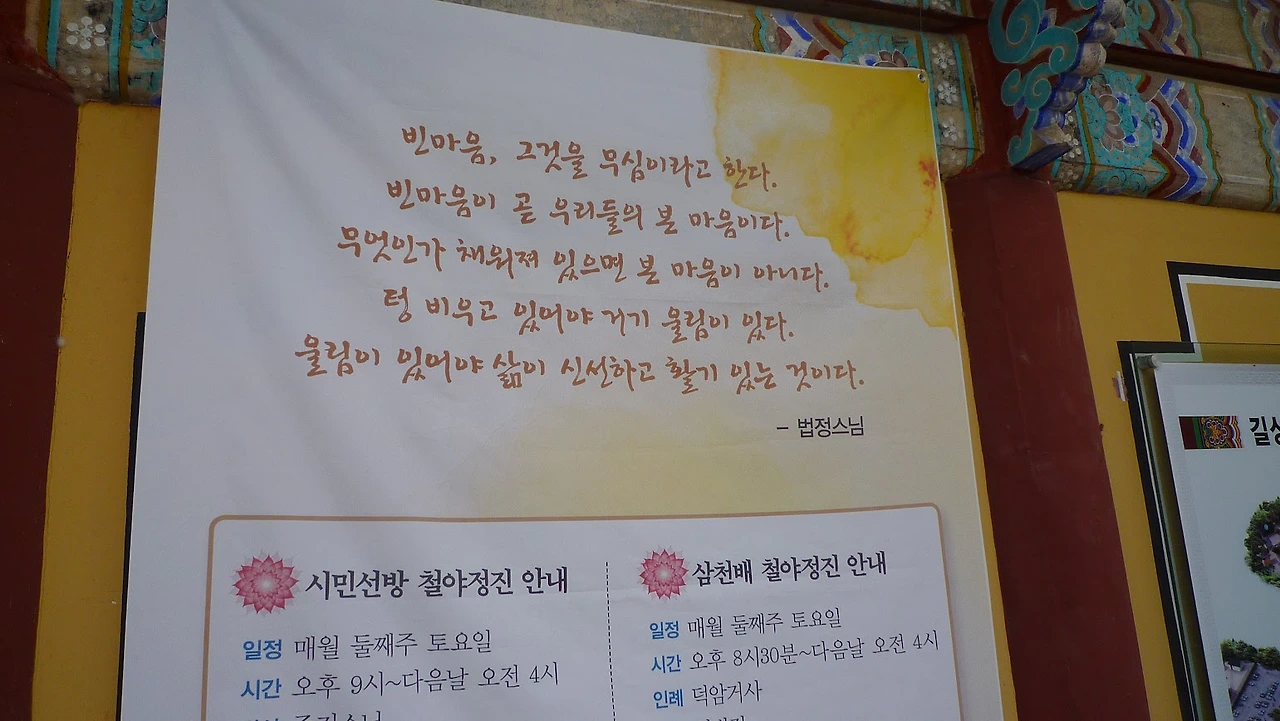 빈마음, 그것을 무심이라고 한다.
빈마음이 곧 우리들의 본 마음이다.
무엇인가 채워져 있으면 본 마음이 아니다.
텅 비우고 있어야 거기 울림이 있다.
울림이 있어야 삶이 신선하고 활기 있는 것이다.
- 법정스님
시민선방 철야정진 안내
일정 매월 둘째주 토요일
시간 오후 9시~다음날 오전 4시
삼천배 철야정진 안내
일정 매월 둘째주 토요일
시간 오후 8시30분~다음날 오전 4시
인례 덕암거사